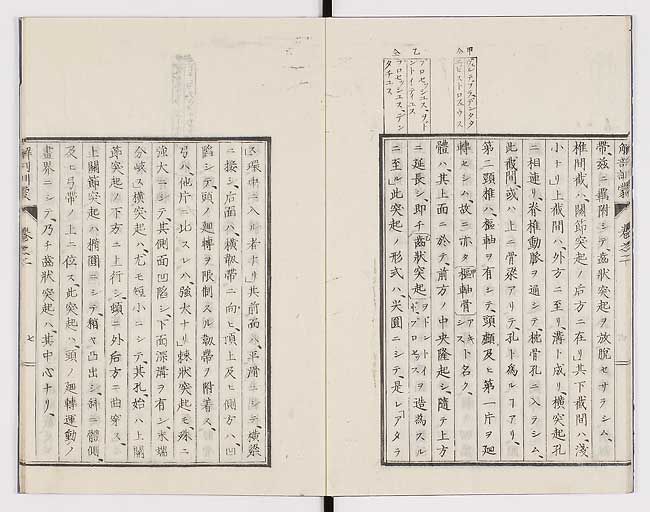 甲
仝 エピストロヘウス
乙
プロセッシュス、ヲド
ントイデイユス
仝
プロセッシュス、デン
タチユス
解剖訓蒙
巻之一
帶、玆ニ羈附シテ、齒狀突起ヲ放脫セサラシム、
椎間截ハ、關節突起ノ后方ニ在リ、其下截間ハ、淺
小ナリ、上截間ハ、外方ニ至リ、溝ト成リ、橫突起孔
ニ相連リ、脊椎動脈ヲ通シテ、枕骨孔ニ入ラシム、
此截間、或ハ上ニ骨梁アリテ、孔ト爲ルヿアリ、
第二頸椎ハ、樞軸ヲ有シテ、頭顱及ヒ第一片ヲ廻
轉セシム、故ニ亦タ樞軸骨 アキシス ト名ク、
體ハ、其上面ニ於テ、前方ノ中央隆起シ、隨テ上方
ニ延長シ、即チ齒狀突起 ヲドントイデプロセス ヲ造爲スル
ニ至ル、此突起ノ形式ハ、尖圓ニシテ、是レアタラ
ス環中ニ入ル者ナリ、其前面ハ、平滑ニシテ、橫梁
ニ接シ、后面ハ、橫靱帶ニ向ヒ、頂上及ヒ側方ハ、凹
陷シテ、頭ノ廻轉ヲ限制スル靱帶ヲ附着ス、
弓ハ、他片ニ比スレハ、強大ナリ、棘狀突起モ殊ニ
強大ニシテ、其側面凹陷シ、下面深溝ヲ有シ、末端
分岐ス、橫突起ハ、尤モ短小ニシテ、其孔、始ハ上關
節突起ノ下方ニ上行シ、頓ニ外后方ニ曲穿ス、
上關節突起ハ、橢圓ニシテ、稍ヤ凸出シ、斜ニ體側、
及ヒ弓帶ノ上ニ位ス、此突起ハ、頭ノ廻轉運動ノ
畫界ニシテ、乃チ齒狀突起ハ、其中心ナリ、
解剖訓蒙
巻之一
七